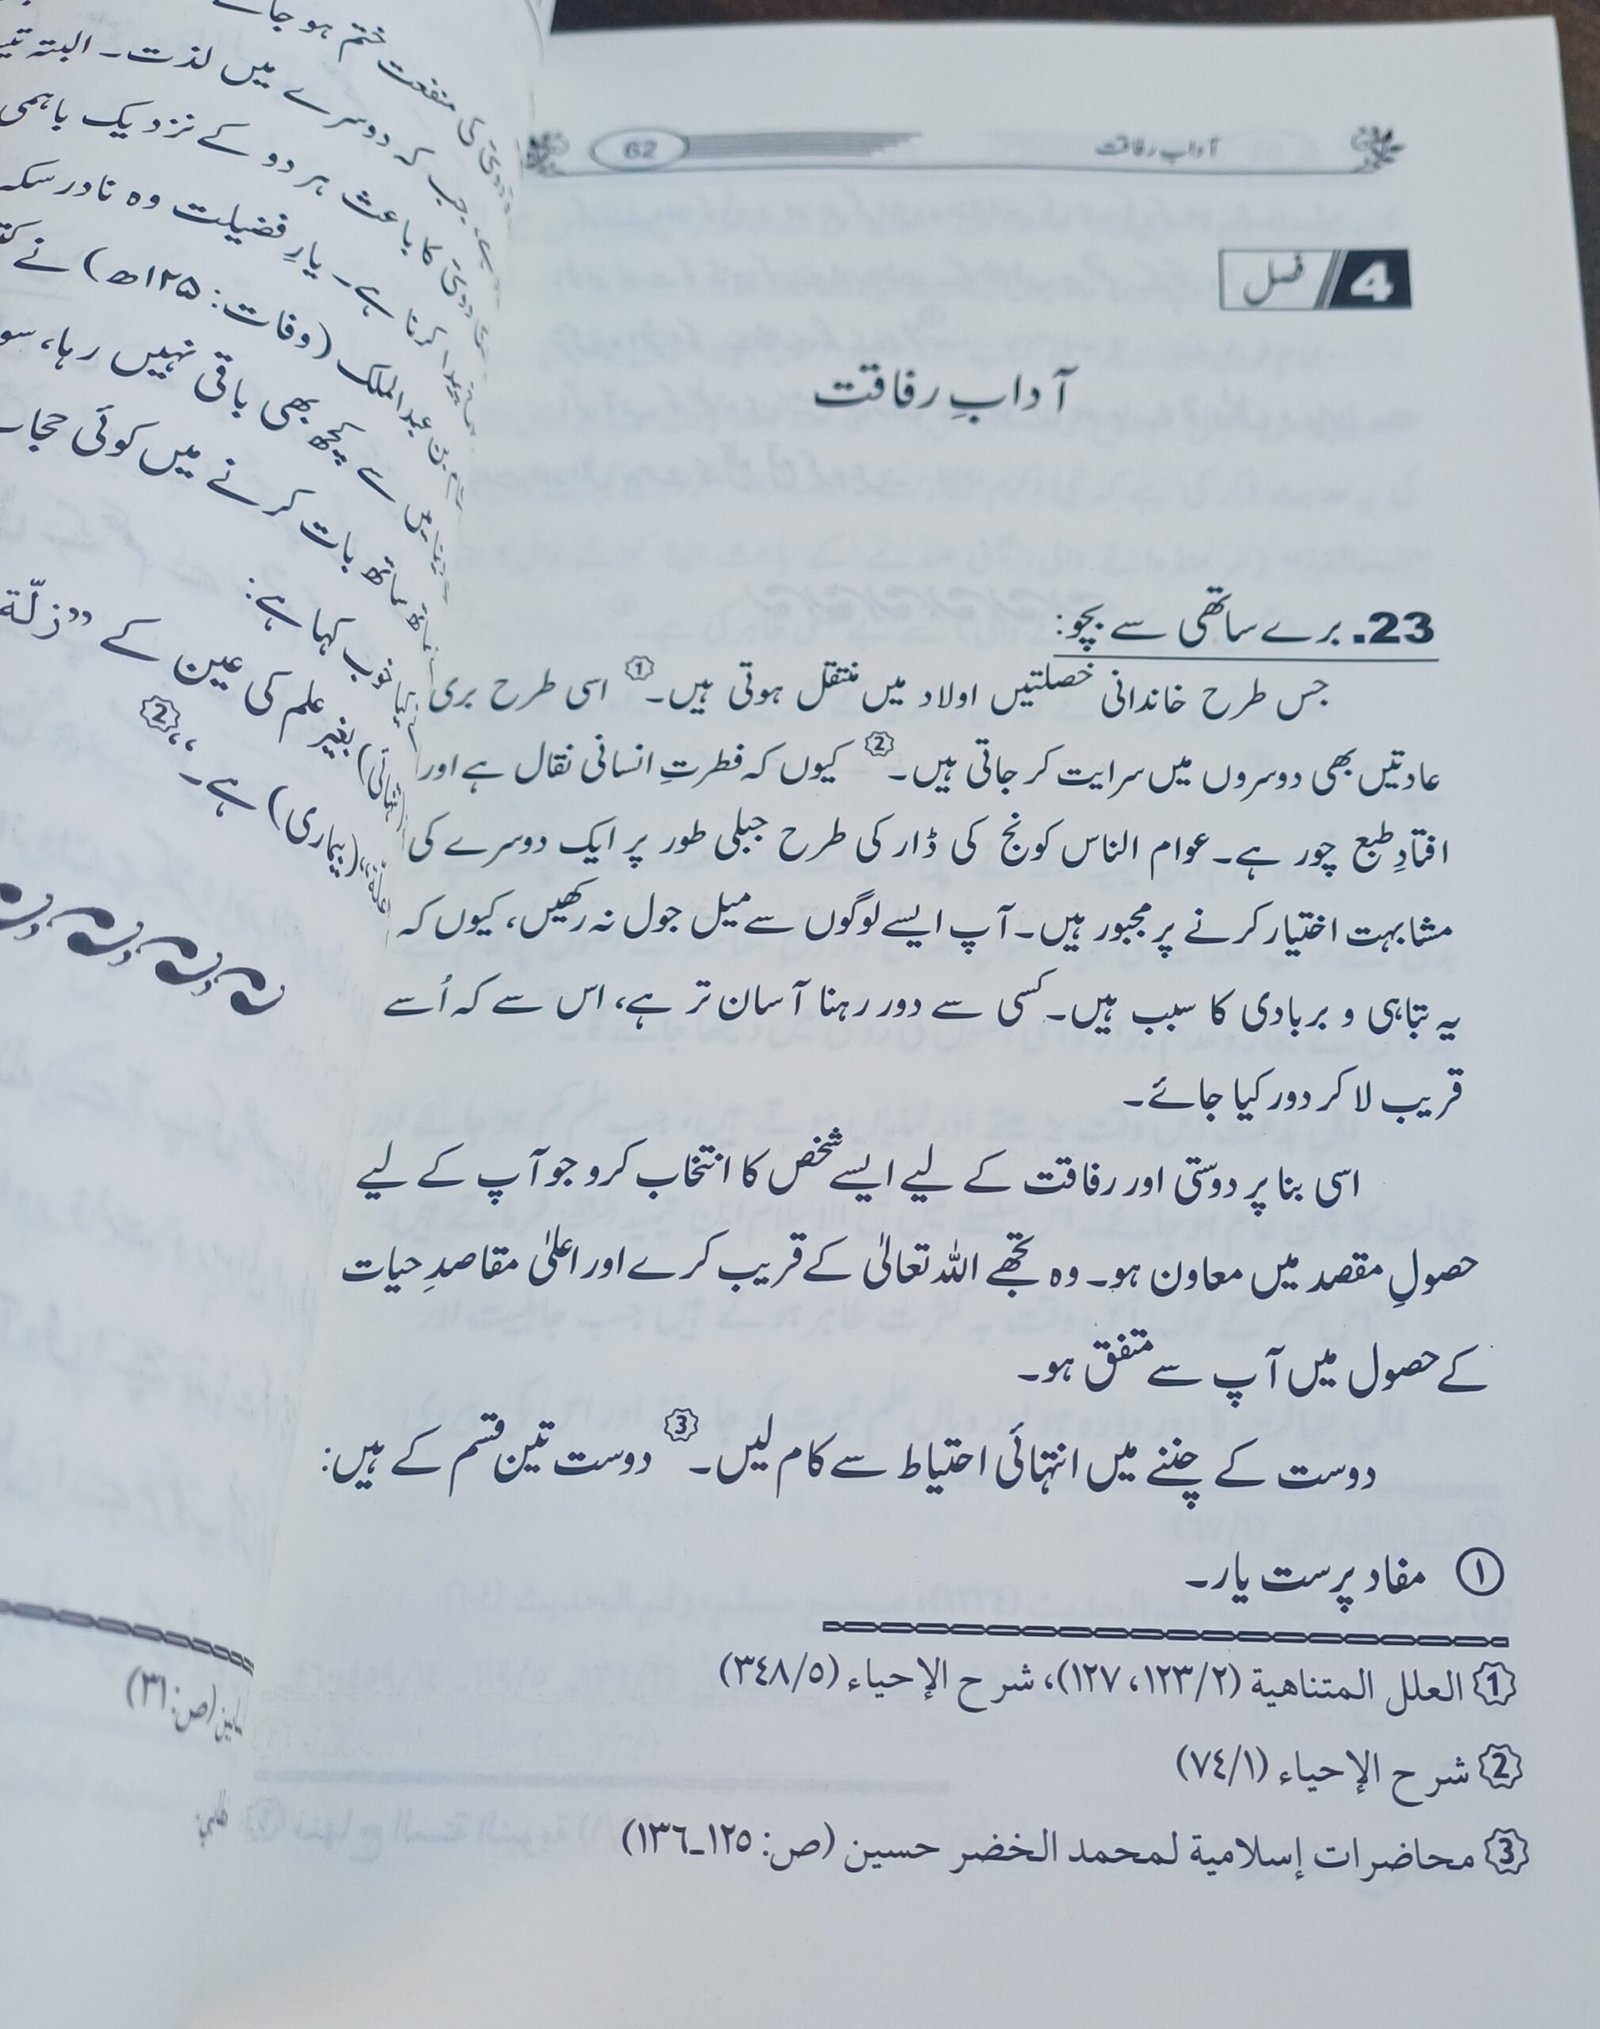 آداب رفاقت
62
4 فصل
آدابِ رفاقت
23. برے ساتھی سے بچو:
جس طرح خاندانی خصلتیں اولاد میں منتقل ہوتی ہیں۔① اسی طرح بری
عادتیں بھی دوسروں میں سرایت کر جاتی ہیں۔② کیوں کہ فطرتِ انسانی نقال ہے اور
افتادِ طبع چور ہے۔ عوام الناس کونج کی ڈار کی طرح جبلی طور پر ایک دوسرے کی
مشابہت اختیار کرنے پر مجبور ہیں۔ آپ ایسے لوگوں سے میل جول نہ رکھیں، کیوں کہ
یہ تباہی و بربادی کا سبب ہیں۔ کسی سے دور رہنا آسان تر ہے، اس سے کہ اُسے
قریب لا کر دور کیا جائے۔
اسی بنا پر دوستی اور رفاقت کے لیے ایسے شخص کا انتخاب کرو جو آپ کے لیے
حصولِ مقصد میں معاون ہو۔ وہ تجھے اللہ تعالیٰ کے قریب کرے اور اعلیٰ مقاصدِ حیات
کے حصول میں آپ سے متفق ہو۔
دوست کے چننے میں انتہائی احتیاط سے کام لیں۔③ دوست تین قسم کے ہیں:
① مفاد پرست یار۔
① العلل المتناهية (١٢٣/٢، ١٢٧)، شرح الإحياء (٣٤٨/٥)
② شرح الإحياء (٧٤/١)
③ محاضرات إسلامية لمحمد الخضر حسين (ص: ١٢٥ـ١٣٦)
منفعت ختم ہو جا
جب کہ دوسرے میں لذت۔ البتہ
کا باعث ہر دو کے نزدیک باہمی
پیدا کرنا ہے۔ یارِ فضیلت وہ نادر سکہ
بن عبدالملک (وفات: ۱۲۵ھ) نے
میں سے کچھ بھی باقی نہیں رہا، سو
ساتھ بات کرنے میں کوئی حجاب
خوب کہا ہے:
(تنہائی) بغیر علم کی عین کے ”زلّة
علّة“ (بیماری) ہے۔“②
(ص: ٣١)